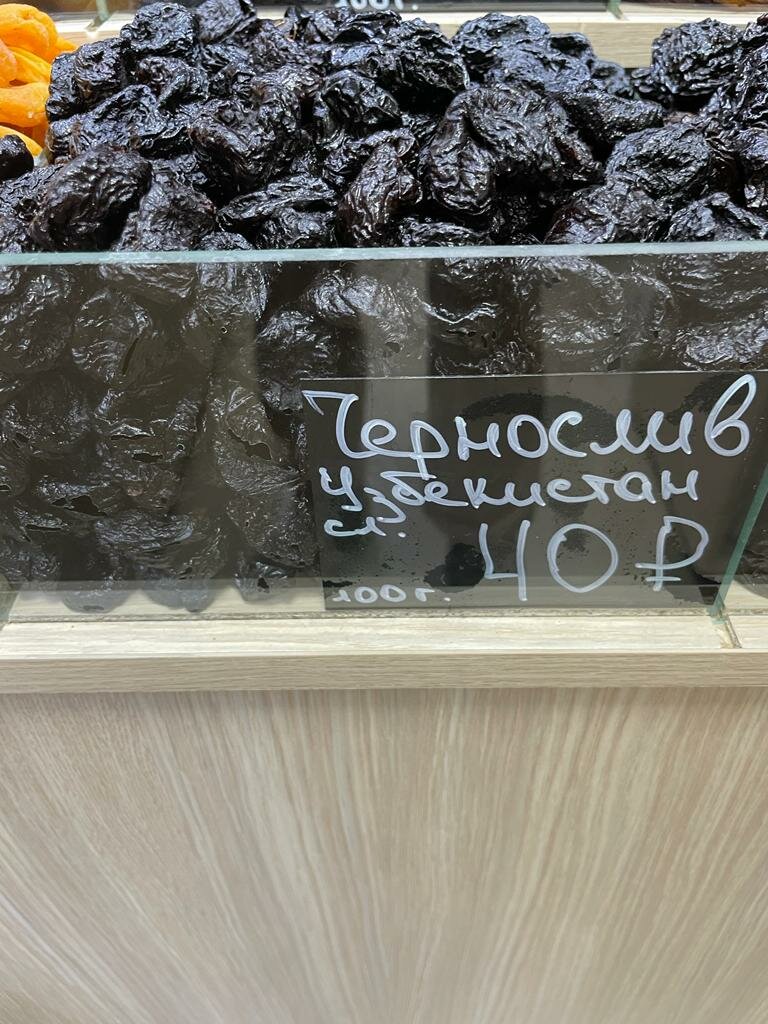 Чернослив
Узбекистан
100г. 40₽